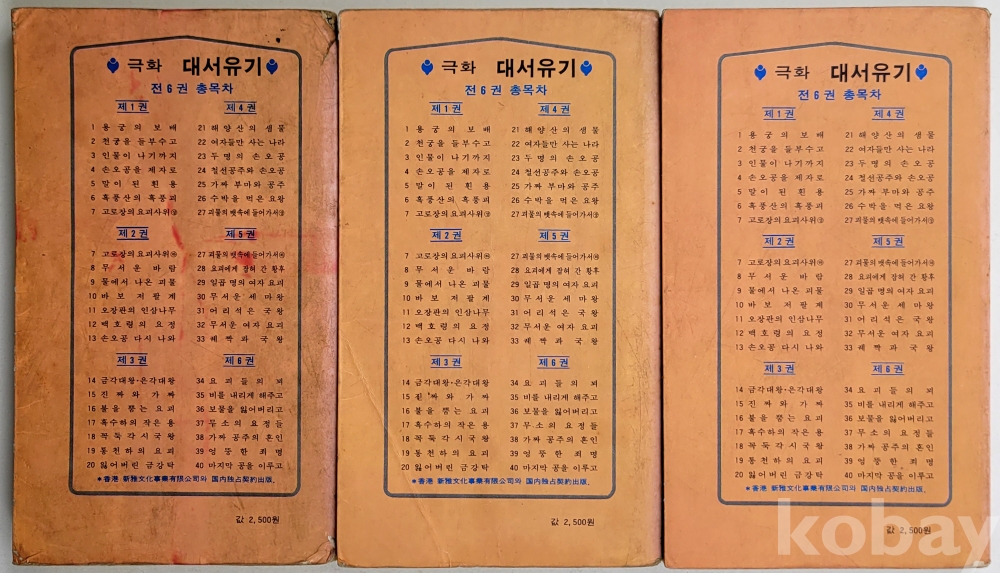 극화 대서유기
전 6 권 총목차
제 1 권
1 용궁의 보배
2 천궁을 들부수고
3 인물이 나기까지
4 손오공을 제자로
5 말이 된 흰 용
6 흑풍산의 흑풍괴
7 고로장의 요괴사위㊤
제 2 권
7 고로장의 요괴사위㊦
8 무서운 바람
9 물에서 나온 괴물
10 바보 저팔계
11 오장관의 인삼나무
12 백호령의 요정
13 손오공 다시 나와
제 3 권
14 금각대왕·은각대왕
15 진짜와 가짜
16 불을 뿜는 요괴
17 흑수하의 작은 용
18 꼭둑각시 국왕
19 통천하의 요괴
20 잃어버린 금강탁
제 4 권
21 해양산의 샘물
22 여자들만 사는 나라
23 두 명의 손오공
24 철선공주와 손오공
25 가짜 부마와 공주
26 수박을 먹은 요왕
27 괴물의 뱃속에 들어가서㊤
제 5 권
27 괴물의 뱃속에 들어가서㊦
28 요괴에게 잡혀 간 황후
29 일곱 명의 여자 요괴
30 무서운 세 마왕
31 어리석은 국왕
32 무서운 여자 요괴
33 궤짝과 국왕
제 6 권
34 요괴들의 꾀
35 비를 내리게 해주고
36 보물을 잃어버리고
37 무소의 요정들
38 가짜 공주의 혼인
39 엉뚱한 죄명
40 마지막 공을 이루고
*香港 新雅文化事業有限公司와 国内独占契約出版.
값 2,500원
극화 대서유기
전 6 권 총목차
제 1 권
1 용궁의 보배
2 천궁을 들부수고
3 인물이 나기까지
4 손오공을 제자로
5 말이 된 흰 용
6 흑풍산의 흑풍괴
7 고로장의 요괴사위㊤
제 2 권
7 고로장의 요괴사위㊦
8 무서운 바람
9 물에서 나온 괴물
10 바보 저팔계
11 오장관의 인삼나무
12 백호령의 요정
13 손오공 다시 나와
제 3 권
14 금각대왕·은각대왕
15 진짜와 가짜
16 불을 뿜는 요괴
17 흑수하의 작은 용
18 꼭둑각시 국왕
19 통천하의 요괴
20 잃어버린 금강탁
제 4 권
21 해양산의 샘물
22 여자들만 사는 나라
23 두 명의 손오공
24 철선공주와 손오공
25 가짜 부마와 공주
26 수박을 먹은 요왕
27 괴물의 뱃속에 들어가서㊤
제 5 권
27 괴물의 뱃속에 들어가서㊦
28 요괴에게 잡혀 간 황후
29 일곱 명의 여자 요괴
30 무서운 세 마왕
31 어리석은 국왕
32 무서운 여자 요괴
33 궤짝과 국왕
제 6 권
34 요괴들의 꾀
35 비를 내리게 해주고
36 보물을 잃어버리고
37 무소의 요정들
38 가짜 공주의 혼인
39 엉뚱한 죄명
40 마지막 공을 이루고
*香港 新雅文化事業有限公司와 国内独占契約出版.
값 2,500원
극화 대서유기
전 6 권 총목차
제 1 권
1 용궁의 보배
2 천궁을 들부수고
3 인물이 나기까지
4 손오공을 제자로
5 말이 된 흰 용
6 흑풍산의 흑풍괴
7 고로장의 요괴사위㊤
제 2 권
7 고로장의 요괴사위㊦
8 무서운 바람
9 물에서 나온 괴물
10 바보 저팔계
11 오장관의 인삼나무
12 백호령의 요정
13 손오공 다시 나와
제 3 권
14 금각대왕·은각대왕
15 진짜와 가짜
16 불을 뿜는 요괴
17 흑수하의 작은 용
18 꼭둑각시 국왕
19 통천하의 요괴
20 잃어버린 금강탁
제 4 권
21 해양산의 샘물
22 여자들만 사는 나라
23 두 명의 손오공
24 철선공주와 손오공
25 가짜 부마와 공주
26 수박을 먹은 요왕
27 괴물의 뱃속에 들어가서㊤
제 5 권
27 괴물의 뱃속에 들어가서㊦
28 요괴에게 잡혀 간 황후
29 일곱 명의 여자 요괴
30 무서운 세 마왕
31 어리석은 국왕
32 무서운 여자 요괴
33 궤짝과 국왕
제 6 권
34 요괴들의 꾀
35 비를 내리게 해주고
36 보물을 잃어버리고
37 무소의 요정들
38 가짜 공주의 혼인
39 엉뚱한 죄명
40 마지막 공을 이루고
*香港 新雅文化事業有限公司와 国内独占契約出版.
값 2,500원
kobay